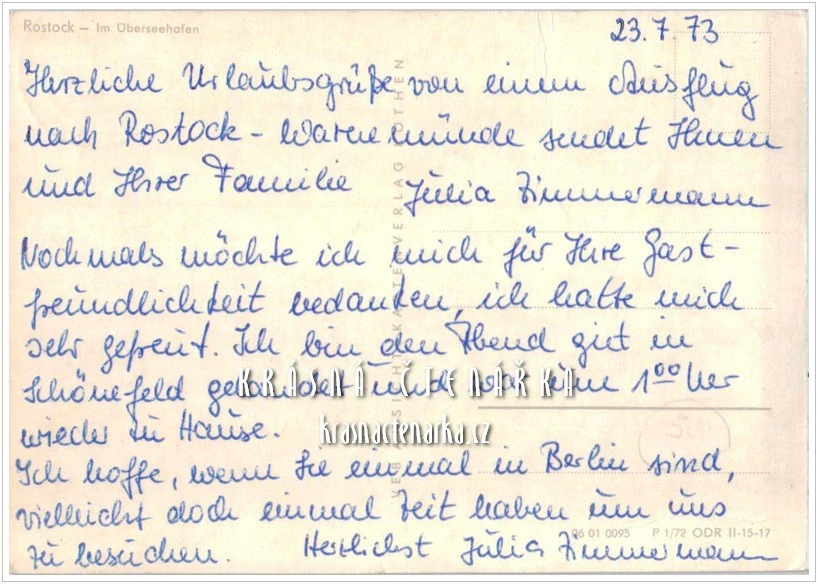 Rostock – Im Überseehafen
23.7.73
Herzliche Urlaubsgrüße von einem Ausflug
nach Rostock-Warnemünde sendet Ihnen
und Ihrer Familie Julia Zimmermann
Nochmals möchte ich mich für Ihre Gast-
freundlichkeit bedanken, ich hatte mich
sehr gefreut. Ich bin den Abend gut in
Schönefeld gelandet und war um 1⁰⁰ Uhr
wieder zu Hause.
Ich hoffe, wenn Sie einmal in Berlin sind,
vielleicht doch einmal Zeit haben um uns
zu besuchen. Herzlichst Julia Zimmermann
VEB BILD
KRÁSNÁ ČTENÁŘKA
krasnactenarka.cz
06 01 0095 P 1/72 ODR II-15-17